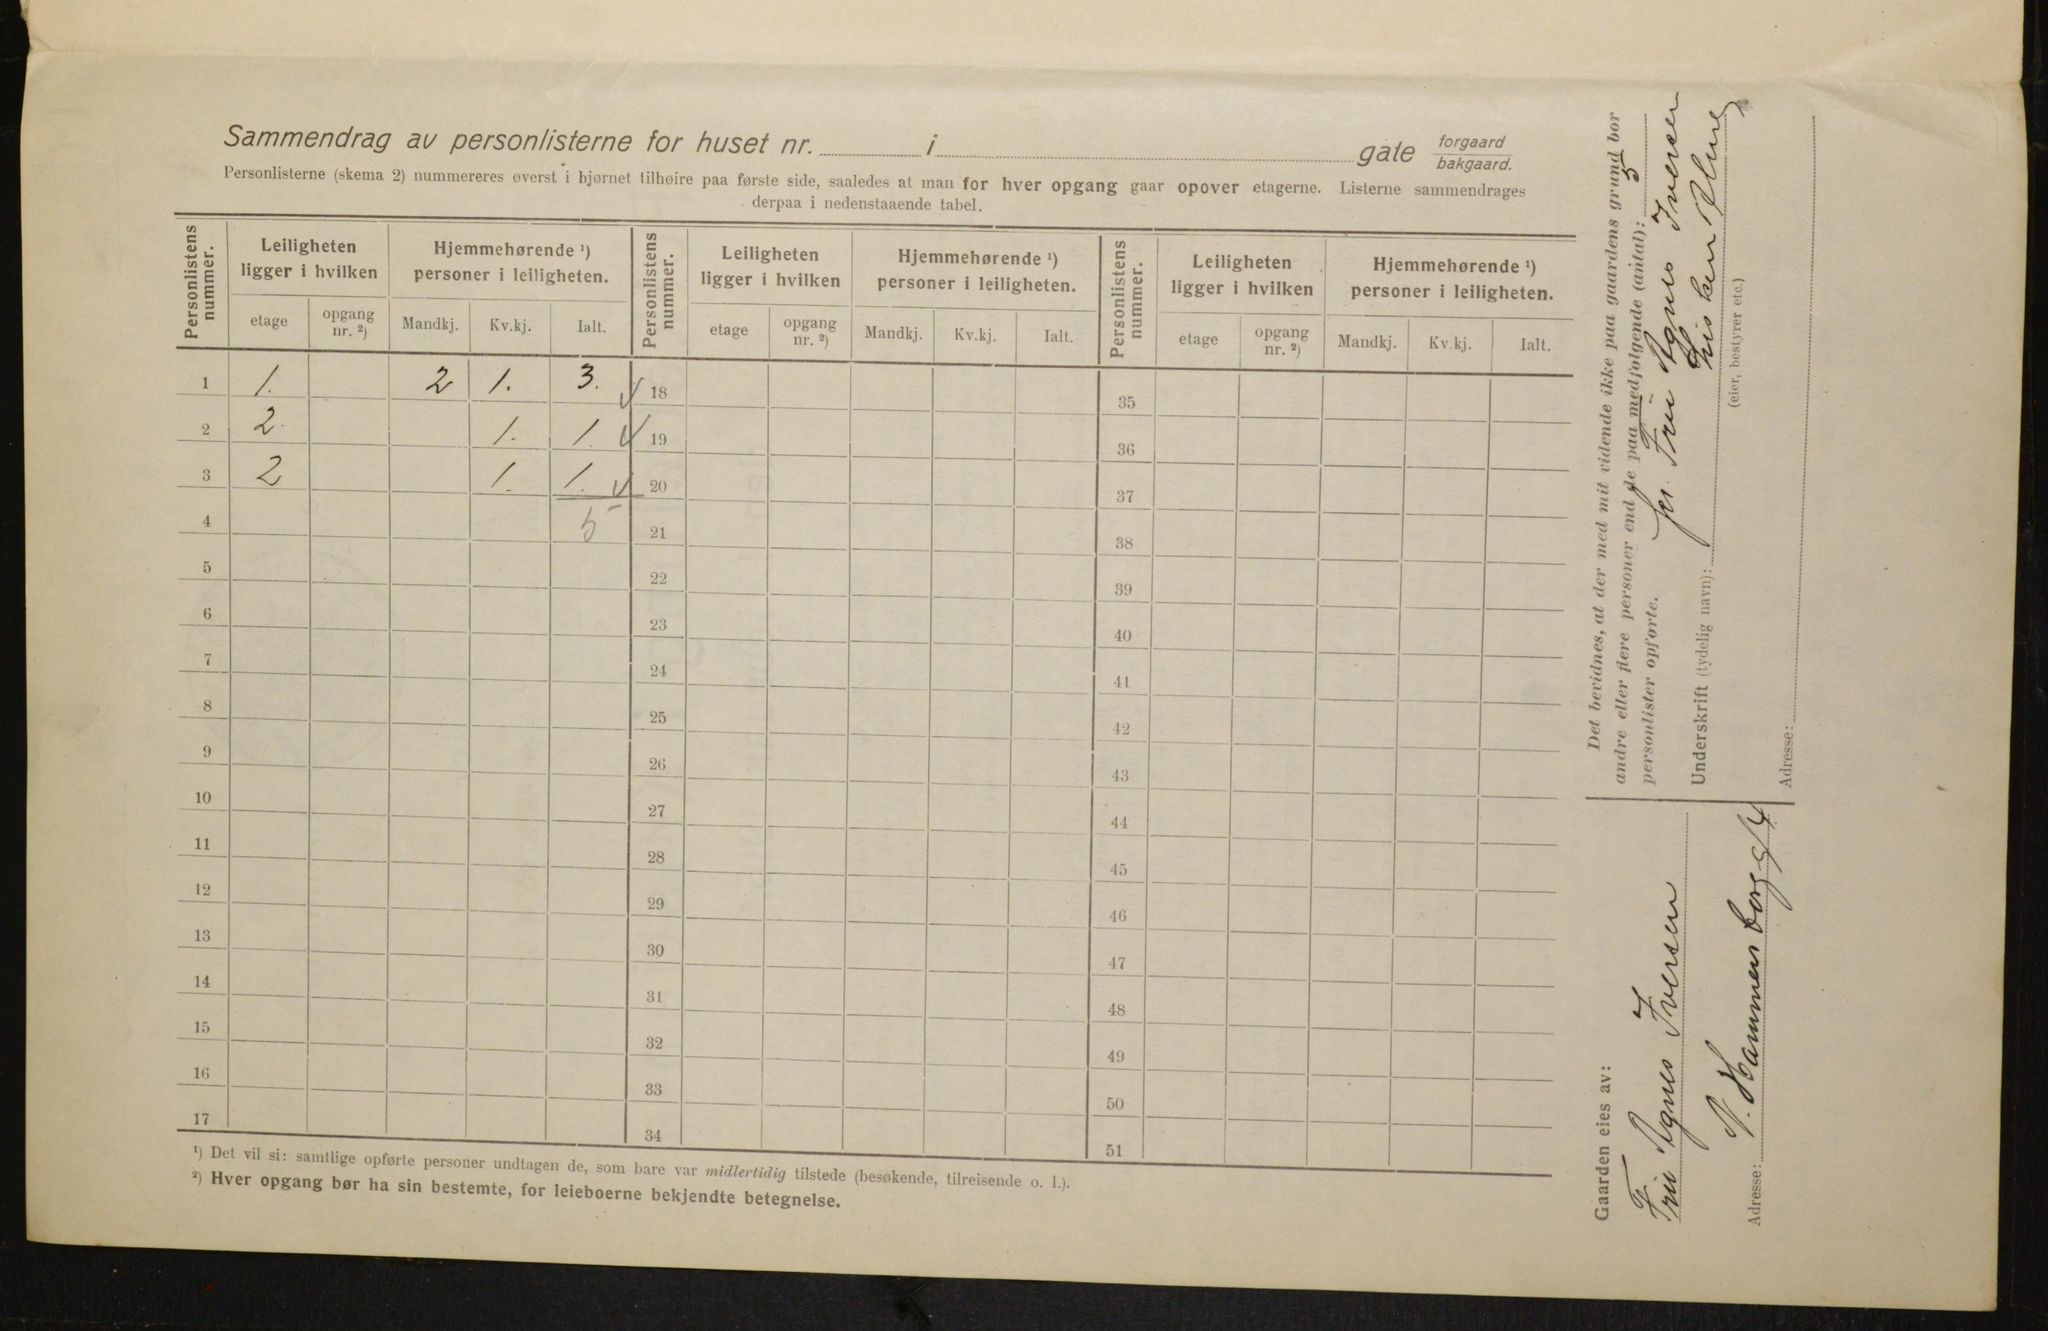 Sammendrag av personlisterne for huset nr. i gate forgaard bakgaard.
Personlisterne (skema 2) nummereres øverst i bjørnet tilhøire paa første side, saaledes at man for hver opgang gaar opover etagerne. Listerne sammendrages
derpaa i nedenstaaende tabel.
Personlistens nummer. Leiligheten ligger i hvilken Hjemmehørende ¹) personer i leiligheten. Personlistens nummer. Leiligheten ligger i hvilken Hjemmehørende ¹) personer i leiligheten. Personlistens nummer. Leiligheten ligger i hvilken Hjemmehørende ¹) personer i leiligheten.
etage opgang nr. ²) Mandkj. Kv.kj. Ialt. etage opgang nr. ²) Mandkj. Kv.kj. Ialt. etage opgang nr. ²) Mandkj. Kv.kj. Ialt.
1 1. 2 1. 3. 18 35
2 2. 1. 1. 19 36
3 2 1. 1. 20 37
4 5 21 38
5 22 39
6 23 40
7 24 41
8 25 42
9 26 43
10 27 44
11 28 45
12 29 46
13 30 47
14 31 48
15 32 49
16 33 50
17 34 51
¹) Det vil si: samtlige opførte personer undtagen de, som bare var midlertidig tilstede (besøkende, tilreisende o. l.).
²) Hver opgang bør ha sin bestemte, for leieboerne bekjendte betegnelse.
Det bevidnes, at der med mit vidende ikke paa gaardens grund bor
andre eller flere personer end de paa medfølgende (antal): 3
personlister opførte.
for Fru Agnes Iversen
Underskrift (tydelig navn):
(eier, bestyrer etc.)
Adresse:
Gaarden eies av:
Fru Agnes Iversen
Adresse: N. Hammersborg g/4